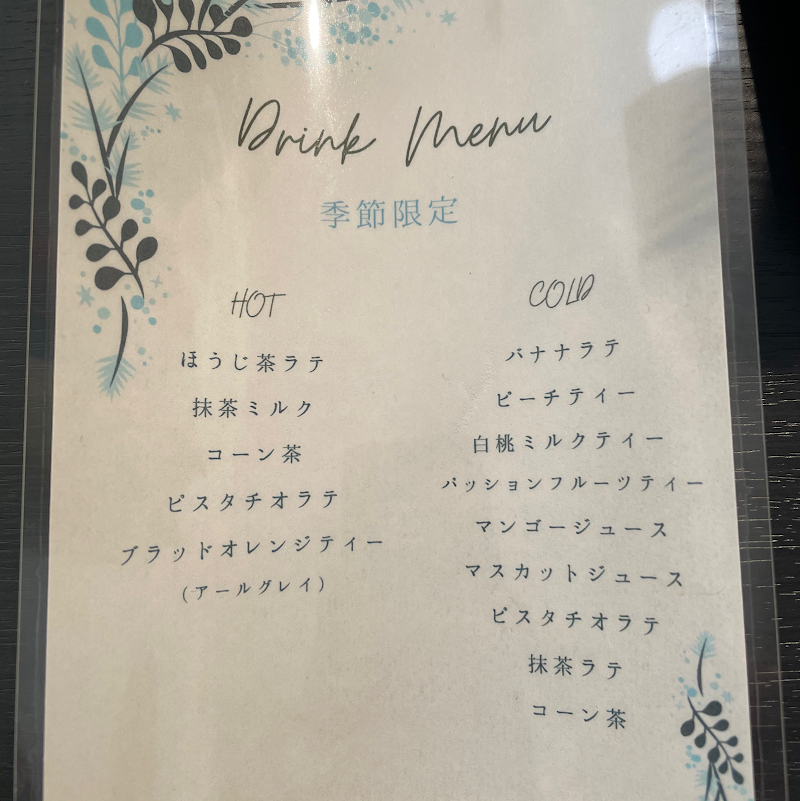 Drink Menu
季節限定
HOT
ほうじ茶ラテ
抹茶ミルク
コーン茶
ピスタチオラテ
ブラッドオレンジティー
(アールグレイ)
COLD
バナナラテ
ピーチティー
白桃ミルクティー
パッションフルーツティー
マンゴージュース
マスカットジュース
ピスタチオラテ
抹茶ラテ
コーン茶